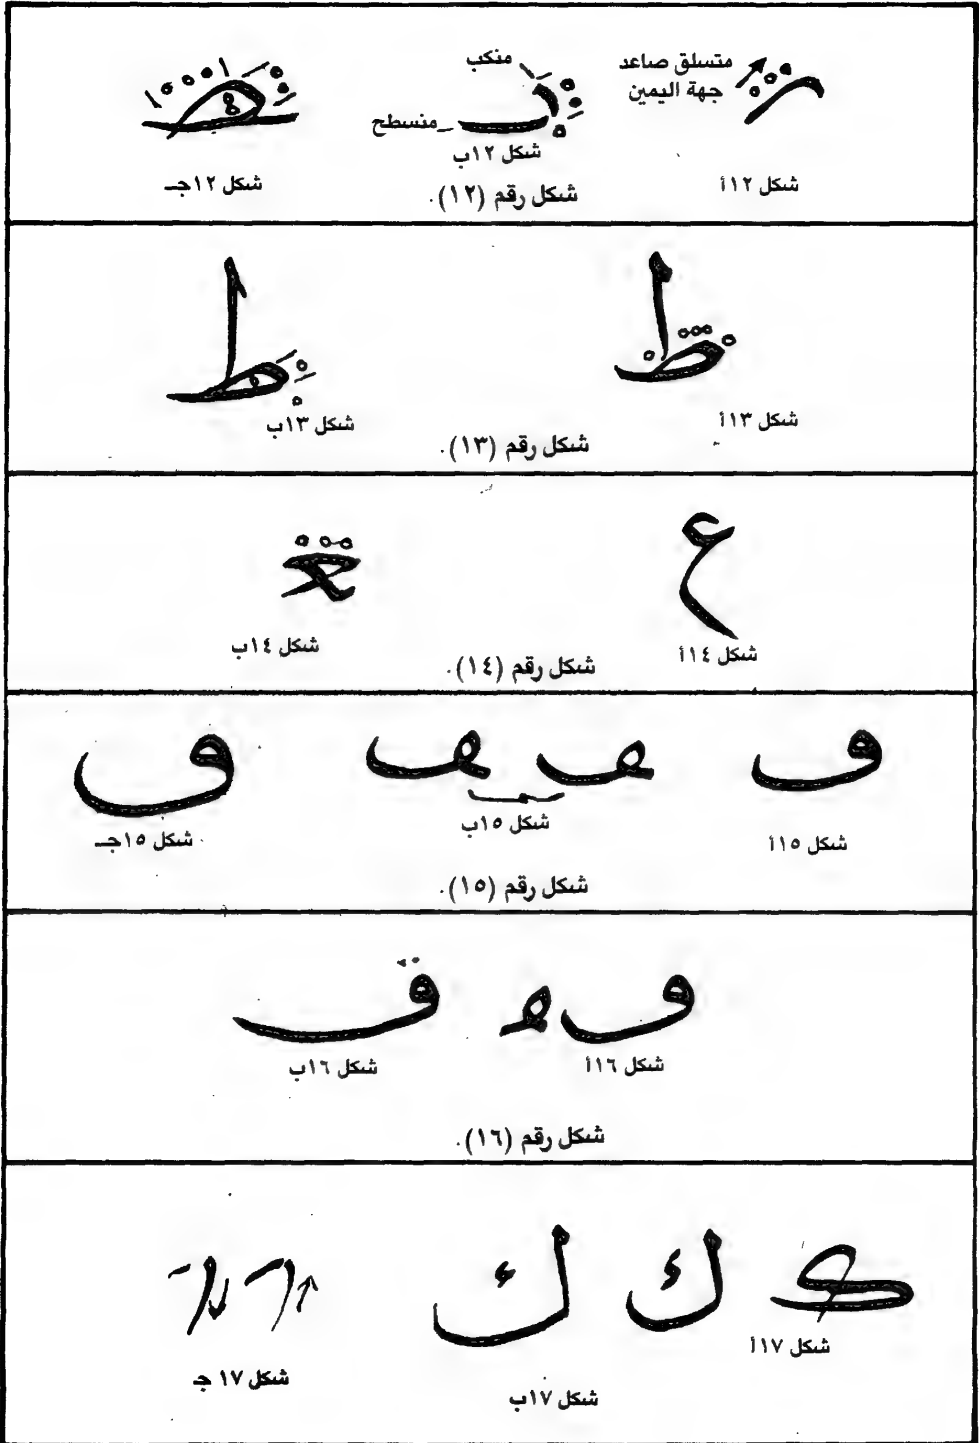 متسلق صاعد
جهة اليمين
منكب
منسطح
شكل ١٢أ
شكل ١٢ب
شكل ١٢جـ
شكل رقم (١٢).
ط
ط
شكل ١٣أ
شكل ١٣ب
شكل رقم (١٣).
ع
شكل ١٤أ
شكل ١٤ب
شكل رقم (١٤).
ف
ف
ف
ف
شكل ١٥أ
شكل ١٥ب
شكل ١٥جـ
شكل رقم (١٥).
ف
ف
شكل ١٦أ
شكل ١٦ب
شكل رقم (١٦).
ك
ك
ك
شكل ١٧أ
شكل ١٧ب
شكل ١٧ جـ